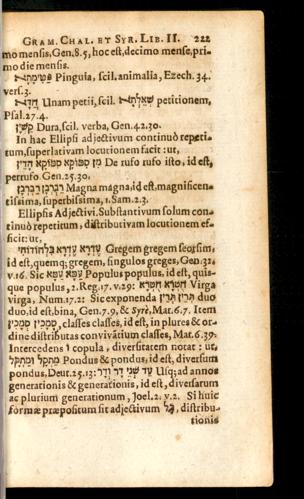 GRAM. CHAL. ET SYR. LIB. II. 222
mo mensis, Gen. 8.5, hoc est, decimo mense, pri-
mo die mensis.
Pinguia, scil. animalia, Ezech. 34.
vers. 3.
חֲדָא Unam petii, scil. petitionem,
Psal. 27.4.
קַשְׁיָן Dura, scil. verba, Gen. 42.30.
In hac Ellipsi adjectivum continuò repeti-
tum, superlativam locutionem facit: ut,
מִן סִמּוֹקָא סִמּוֹקָא הָדֵין De rufo rufo isto, id est,
perrufo Gen. 25.30.
רַבְרְבָן רַבְרְבָן Magna magna, id est, magnificen-
tissima, superbissima, 1. Sam. 2.3.
Ellipsis Adjectivi. Substantivum solum con-
tinuò repetitum, distributivam locutionem ef-
ficit: ut,
עֶדְרָא עֶדְרָא בִּלְחוֹדוֹהִי Gregem gregem seorsim,
id est, quemq; gregem, singulos greges, Gen. 32.
v. 16. Sic עַמָּא עַמָּא Populus populus, id est, quis-
que populus, 2. Reg. 17. v. 29: חֻטְרָא חֻטְרָא Virga
virga, Num. 17.2: Sic exponenda תְּרֵין תְּרֵין duo
duo, id est, bina, Gen. 7.9, & Syrè, Mat. 6.7. Item
סָמְכִין סָמְכִין, classes classes, id est, in plures & or-
dine distributas convivâtium classes, Mat. 6.39.
Intercedens ו copula, diversitatem notat: ut,
מַתְקָל וּמַתְקָל Pondus & pondus, id est, diversum
pondus, Deut. 25.13: עַד שְׁנֵי דָר וְדָר Usq; ad annos
generationis & generationis, id est, diversarum
ac plurium generationum, Joel. 2. v. 2. Si huic
formæ præpositum sit adjectivum כָּל, distribu-
tionis